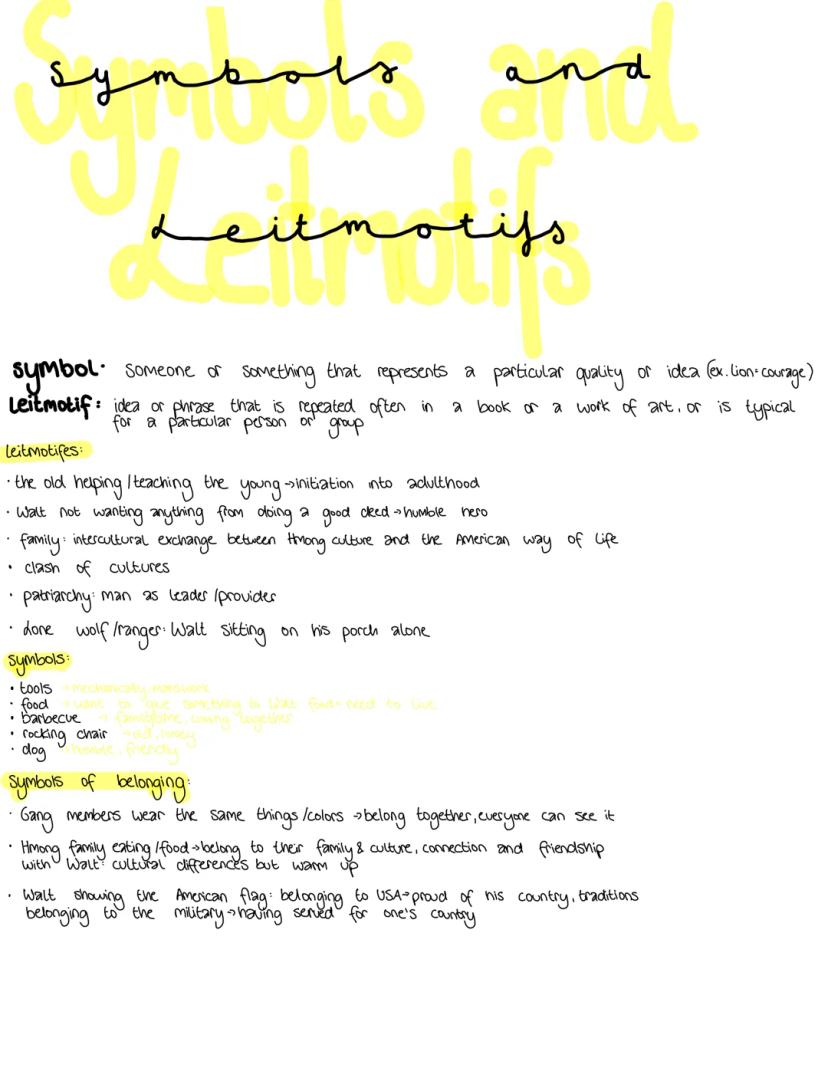 Symbols and
Leitmotifs
symbol: someone or something that represents a particular quality or idea (ex. lion = courage)
Leitmotif: idea or phrase that is repeated often in a book or a work of art, or is typical
for a particular person or group
leitmotifes:
· the old helping / teaching the young → initiation into adulthood
· Walt not wanting anything from doing a good deed → humble hero
· family: intercultural exchange between Hmong culture and the American way of life
· clash of cultures
· patriarchy: man as leader / provider
· Lone wolf / ranger: Walt sitting on his porch alone
symbols:
· tools →
· food → want to give something to Walt food = need to live
· barbecue → coming together
· rocking chair → old
· dog → humble, friendly
Symbols of belonging:
· Gang members wear the same things / colors → belong together, everyone can see it
· Hmong family eating / food → belong to their family & culture, connection and friendship
with Walt: cultural differences but warm up
· Walt showing the American flag: belonging to USA → proud of his country, traditions
belonging to the military → having served for one's country